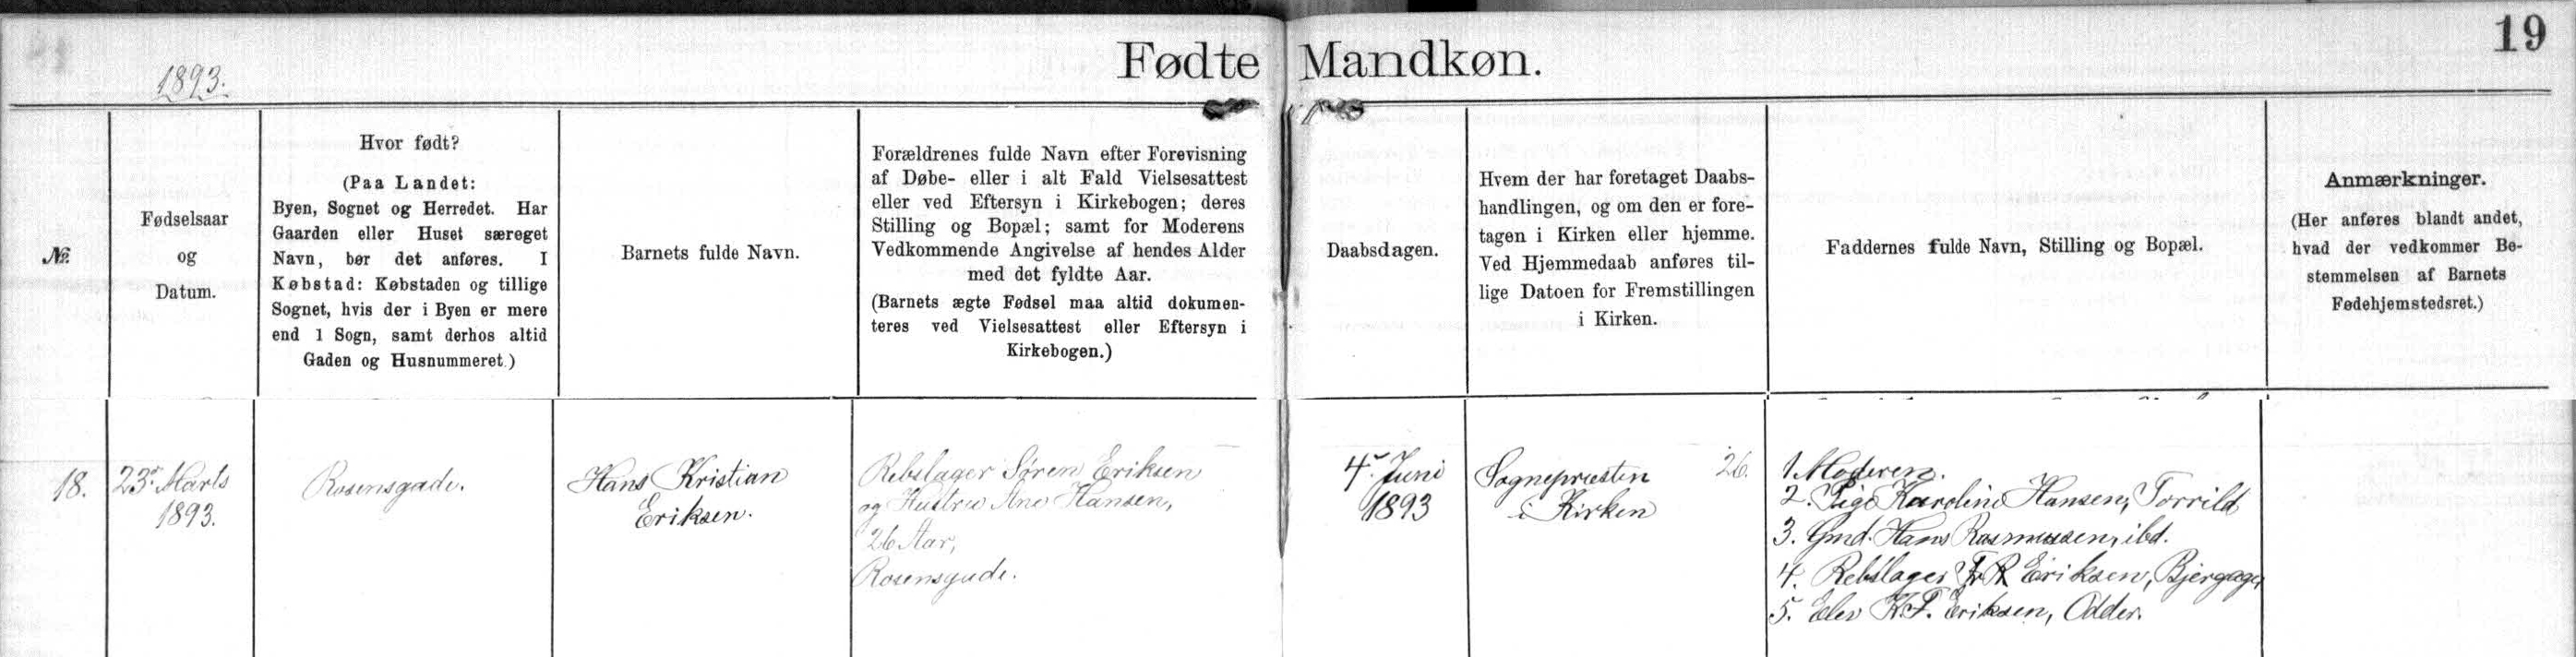 19
Fødte Mandkøn.
1893.
№
Fødselsaar
og
Datum.
Hvor født?
(Paa Landet:
Byen, Sognet og Herredet. Har
Gaarden eller Huset særeget
Navn, bør det anføres. I
Købstad: Købstaden og tillige
Sognet, hvis der i Byen er mere
end 1 Sogn, samt derhos altid
Gaden og Husnummeret.)
Barnets fulde Navn.
Forældrenes fulde Navn efter Forevisning
af Døbe- eller i alt Fald Vielsesattest
eller ved Eftersyn i Kirkebogen; deres
Stilling og Bopæl; samt for Moderens
Vedkommende Angivelse af hendes Alder
med det fyldte Aar.
(Barnets ægte Fødsel maa altid dokumen-
teres ved Vielsesattest eller Eftersyn i
Kirkebogen.)
Daabsdagen.
Hvem der har foretaget Daabs-
handlingen, og om den er fore-
tagen i Kirken eller hjemme.
Ved Hjemmedaab anføres til-
lige Datoen for Fremstillingen
i Kirken.
Faddernes fulde Navn, Stilling og Bopæl.
Anmærkninger.
(Her anføres blandt andet,
hvad der vedkommer Be-
stemmelsen af Barnets
Fødehjemstedsret.)
18.
23. Marts
1893.
Rosensgade.
Hans Kristian
Eriksen.
Rebslager Søren Eriksen
og Hustru Ane Hansen,
26 Aar,
Rosensgade.
4. Juni
1893
Sognepræsten 26.
i Kirken
1. Moderen.
2. Pige Karoline Hansen, Torrild
3. Gmd. Hans Rasmussen, ibd.
4. Rebslager Fr R Eriksen, Bjergager
5. Elev K.F. Eriksen, Odder.